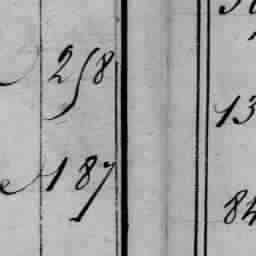 258
187
13
84